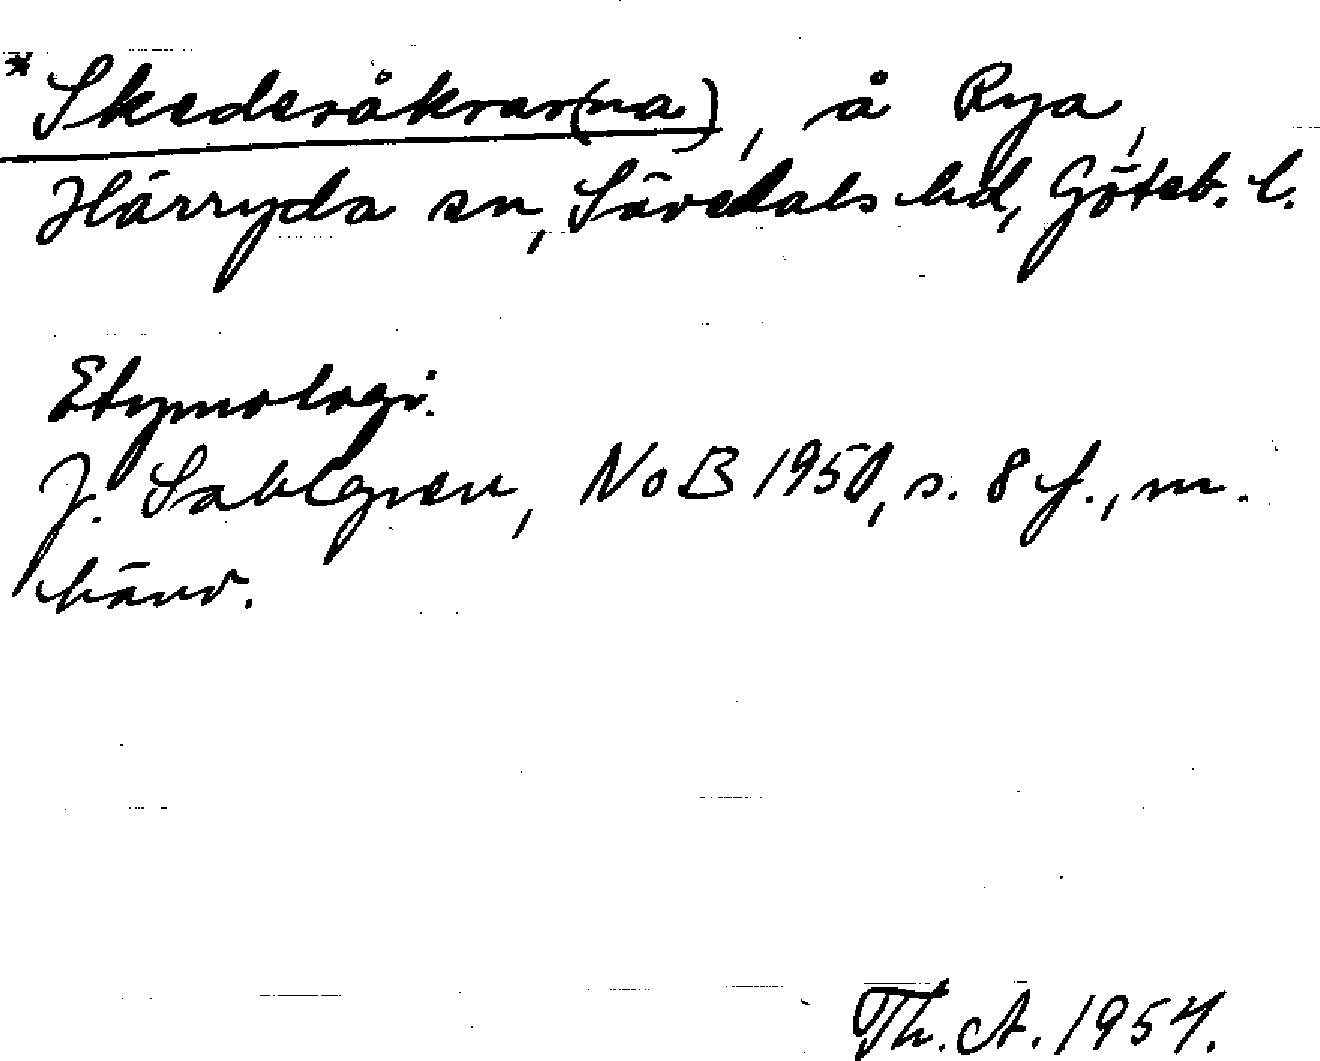 *Skedesåkrar(na), å Rya,
Härryda sn, Sävedals hd, Göteb. l.
Etymologi.
J. Sahlgren, NoB 1950, s. 8 f., m.
hänv.
Th. A. 1954.